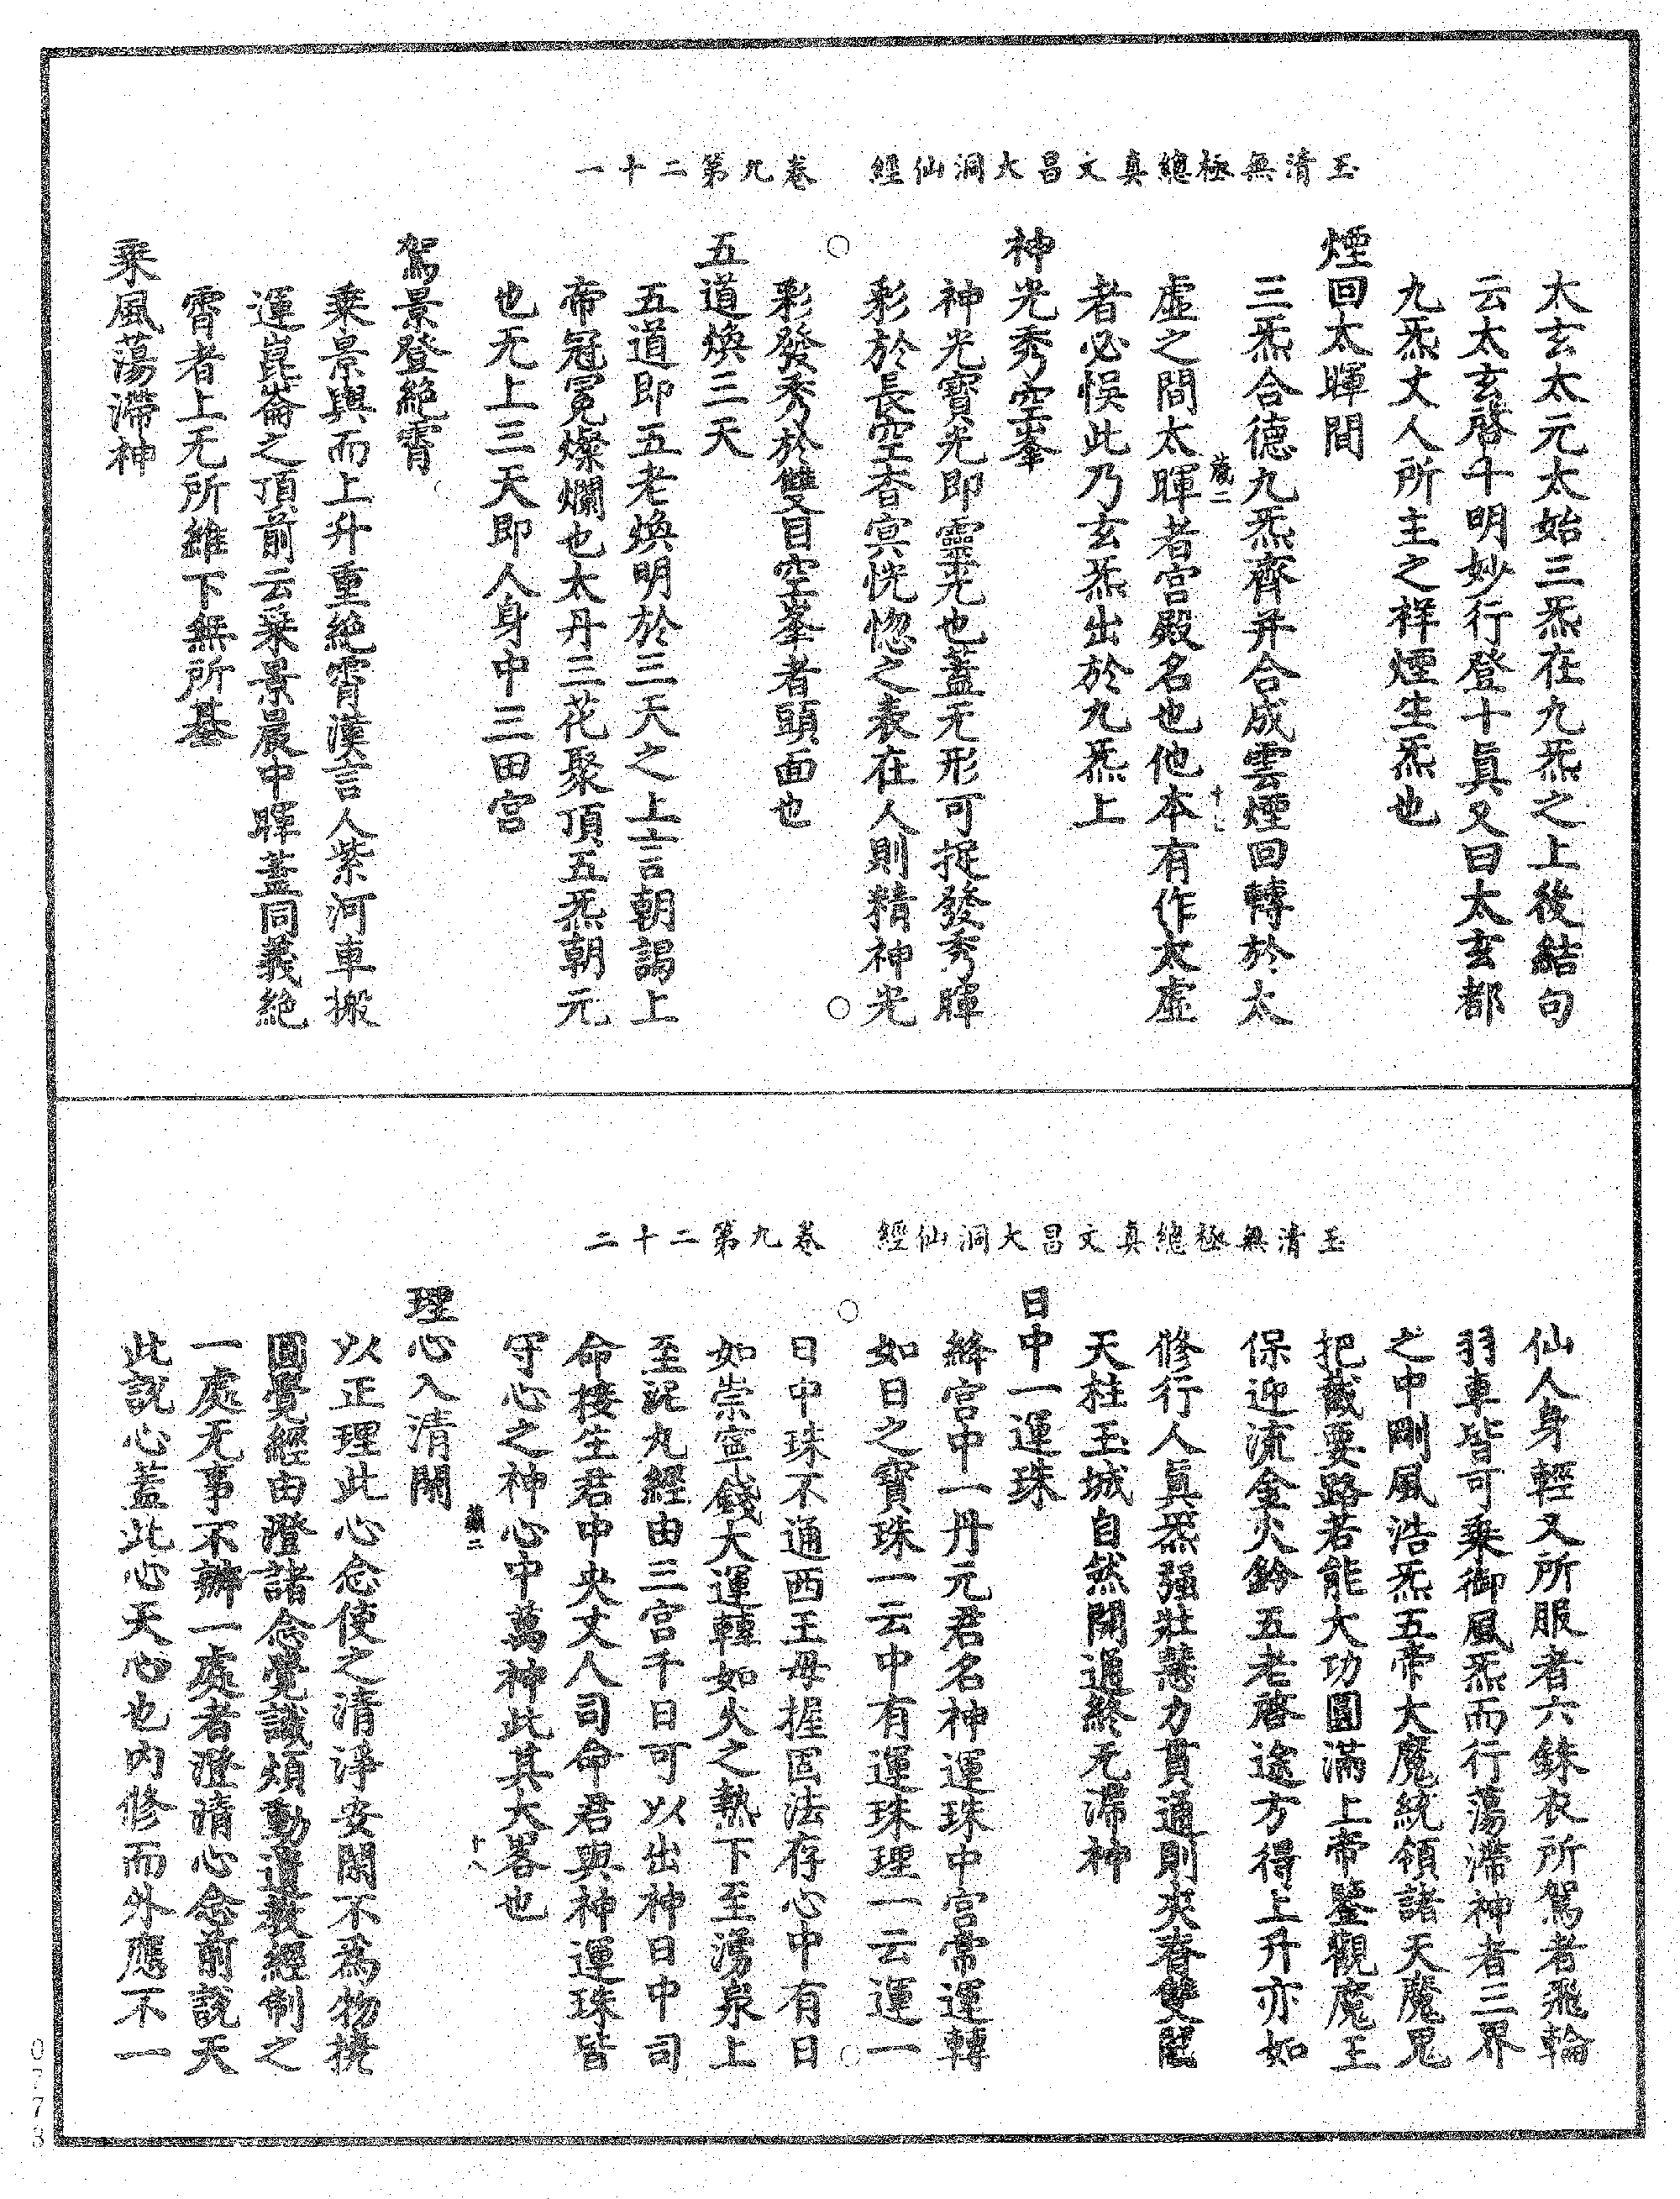 玉清無極總真文昌大洞仙經　卷九第二十一
太玄太元太始三炁在九炁之上後結句
云太玄啓千明妙行登十眞又曰太玄都
九炁丈人所主之祥煙生炁也
煙回太暉間
三炁合德九炁齊并合成雲煙回轉於太
虛之間太暉者宮殿名也他本有作太虛
者必悞此乃玄炁出於九炁上
神光秀空峯
神光寶光即靈光也蓋无形可捉發秀暉
彩於長空杳冥恍惚之表在人則精神光
彩發秀於雙目空峯者頭面也
五道煥三天
五道即五老煥明於三天之上言朝謁上
帝冠冕燦爛也太丹三花聚頂五炁朝元
也无上三天即人身中三田宮
駕景登絕霄
乘景與而上升重絕霄漢言人紫河車搬
運崑崙之頂前云乘景晨中暉蓋同義絕
霄者上无所維下無所基
乘風蕩滯神
玉清無極總真文昌大洞仙經　卷九第二十二
仙人身輕又所服者六銖衣所駕者飛輪
羽車皆可乘御風炁而行蕩滯神者三界
之中剛風浩炁五帝大魔統領諸天魔鬼
把截要路若能大功圓滿上帝鑒觀魔王
保迎流金火鈴五老啓途方得上升亦如
修行人眞炁强壯慧力貫通則夾脊雙關
天柱玉城自然開通終无滯神
日中一運珠
絳宮中一丹元君名神運珠中宮常運轉
如日之寶珠一云中有運珠理一云運一
日中珠不通西王母握固法存心中有日
如崇寧錢大運轉如火之熱下至湧泉上
至泥丸經由三宮千日可以出神日中司
命接生君中央丈人司命君與神運珠皆
守心之神心中萬神此其大畧也
理心入清閑
以正理此心念使之清淨安閑不爲物擾
圓覺經由澄諸念覺識煩動遺教經制之
一處无事不辦一處者澄清心念前說天
此說心蓋此心天心也內修而外應不一